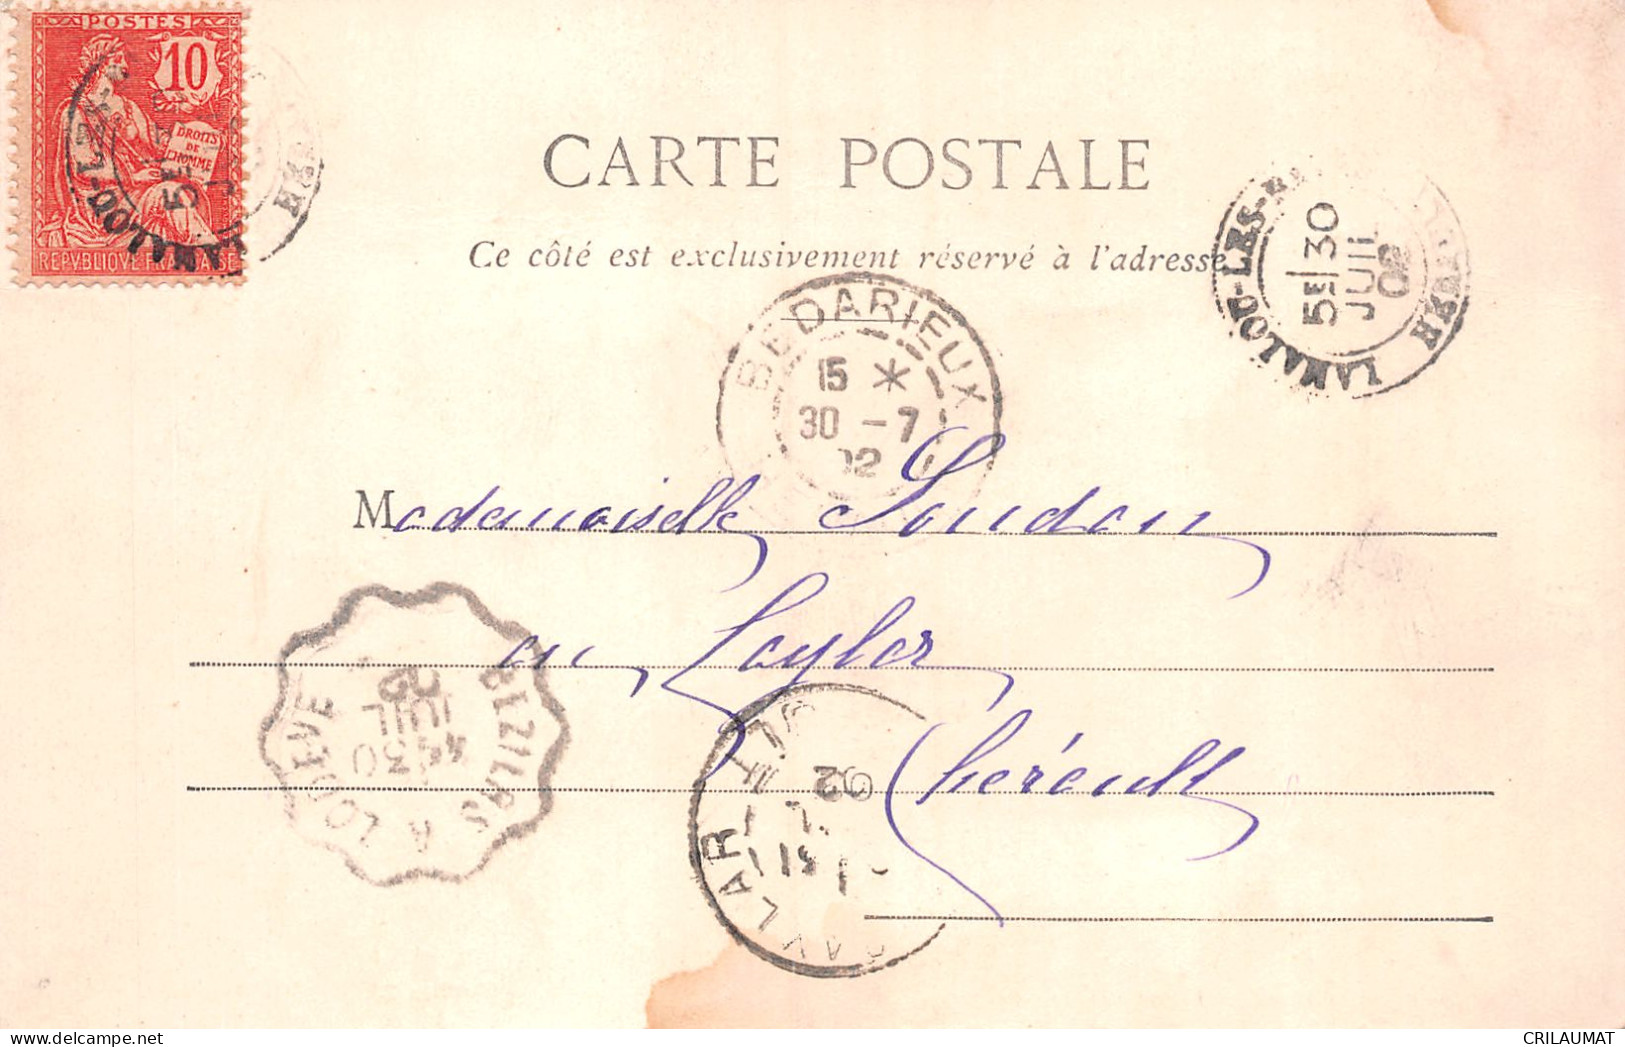 POSTES
10
DROITS
DE
L'HOMME
REPVBLIQVE FRANÇAISE
LAMALOU-LES-
5E|30
HÉR
CARTE POSTALE
Ce côté est exclusivement réservé à l'adresse
LAMALOU-LES-
5E|30
JUIL
02
BEDARIEUX
15 *
30 -7
02
Mademoiselle Soudan
au Caylar
Hérault
BEZIERS A LODEVE
30
JUIL
02
CAYLAR
31
02
CRILAUMAT